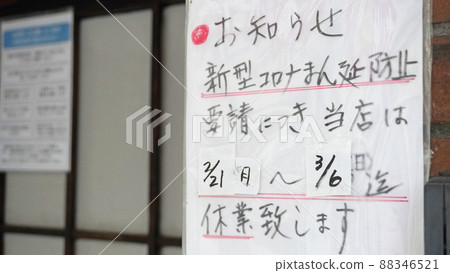 ●お知らせ
新型コロナまん延防止
要請につき当店は
2/21 月 〜 3/6 日 迄
休業致します
PIXTA
pixta.jp - 88346521